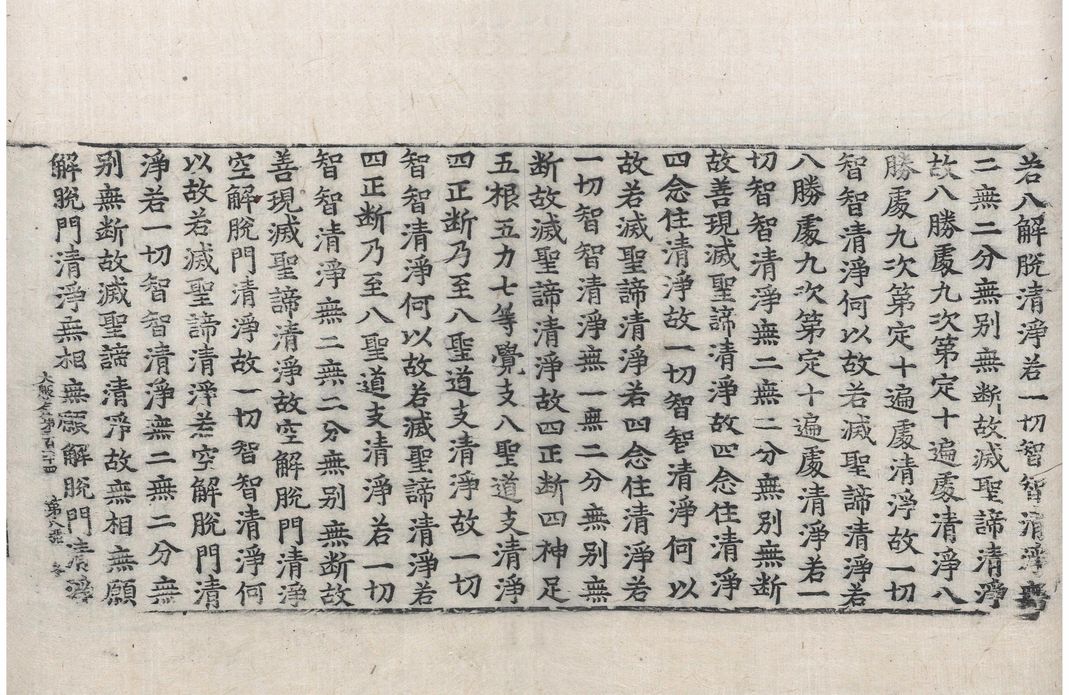 若八解脱清淨若一切智智清淨無
二無二分無别無断故滅聖諦清淨
故八勝處九次第定十遍處清淨八
勝處九次第定十遍處清淨故一切
智智清淨何以故若滅聖諦清淨若
八勝處九次第定十遍處清淨若一
切智智清淨無二無二分無别無断
故善現滅聖諦清淨故四念住清淨
四念住清淨故一切智智清淨何以
故若滅聖諦清淨若四念住清淨若
一切智智清淨無二無二分無别無
断故滅聖諦清淨故四正断四神足
五根五力七等覺支八聖道支清淨
四正断乃至八聖道支清淨故一切
智智清淨何以故若滅聖諦清淨若
四正断乃至八聖道支清淨若一切
智智清淨無二無二分無别無断故
善現滅聖諦清淨故空解脱門清淨
空解脱門清淨故一切智智清淨何
以故若滅聖諦清淨若空解脱門清
淨若一切智智清淨無二無二分無
别無断故滅聖諦清淨故無相無願
解脱門清淨無相無願解脱門清淨
大般 第二百六十四 第八張